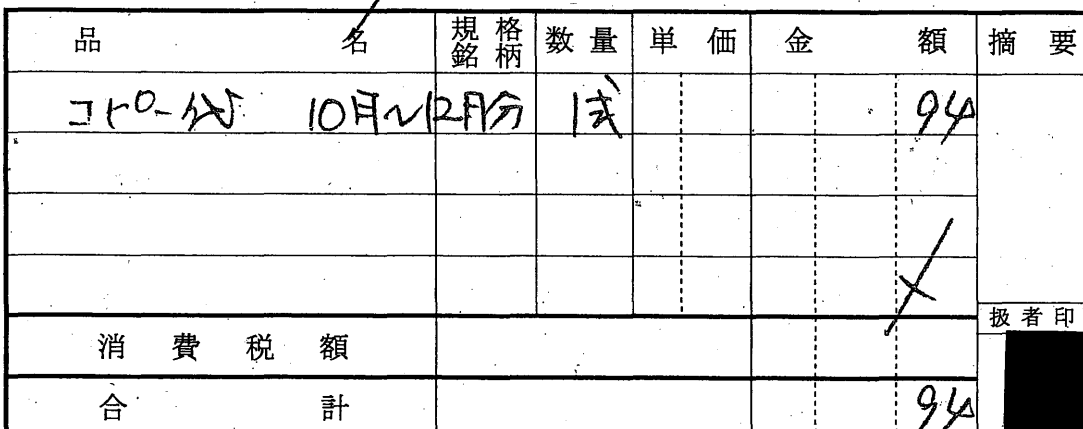 品 名 規格銘柄 数量 単価 金額 摘要
コピー代 10月〜12月分 1式 94
扱者印
消費税額
合計 94